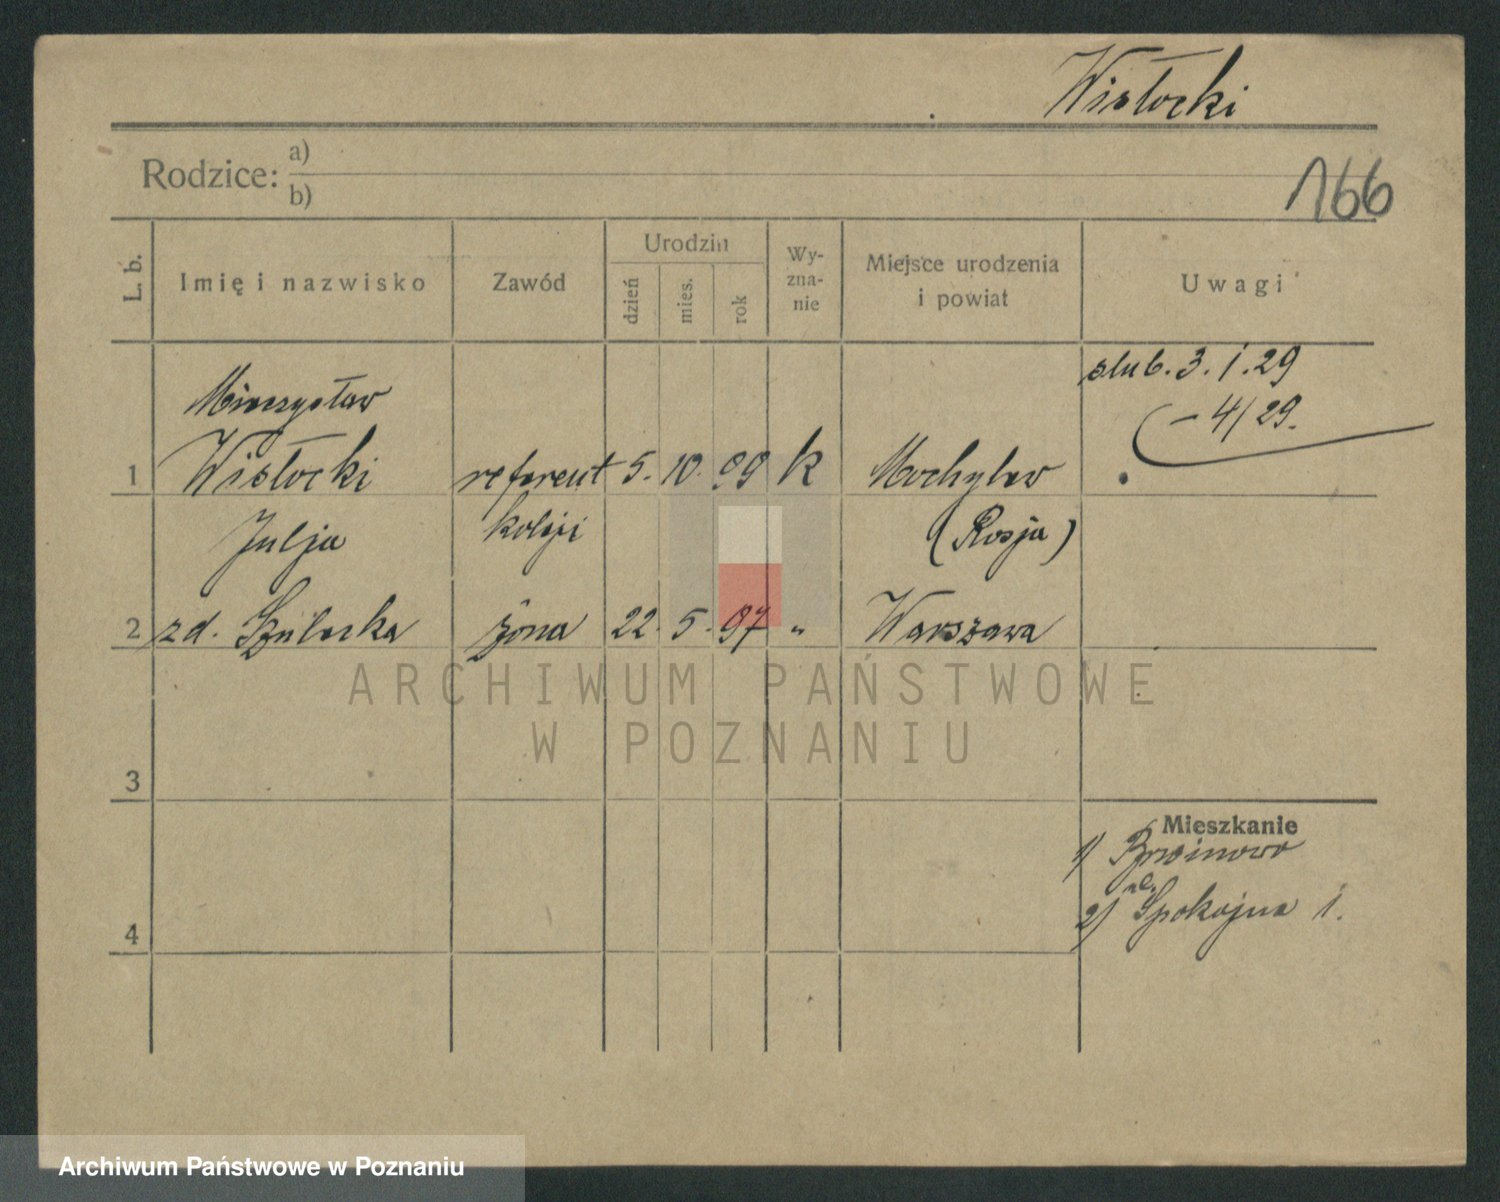 Wisłocki
Rodzice: a)
b)
166
L. b.
Imię i nazwisko
Zawód
Urodzin
dzień
mies.
rok
Wy-
zna-
nie
Miejsce urodzenia
i powiat
Uwagi
slub. 3. 1. 29
– 4/29.
Mieczysław
1 Wisłocki referent 5. 10. 99 k Mochylew
Julja koleji (Rosja)
2 zd. Szulecka żona 22. 5. 97 „ Warszawa
ARCHIWUM PAŃSTWOWE
W POZNANIU
3
Mieszkanie
1) Brwinowo
ul.
2) Spokojna 1.
4
Archiwum Państwowe w Poznaniu